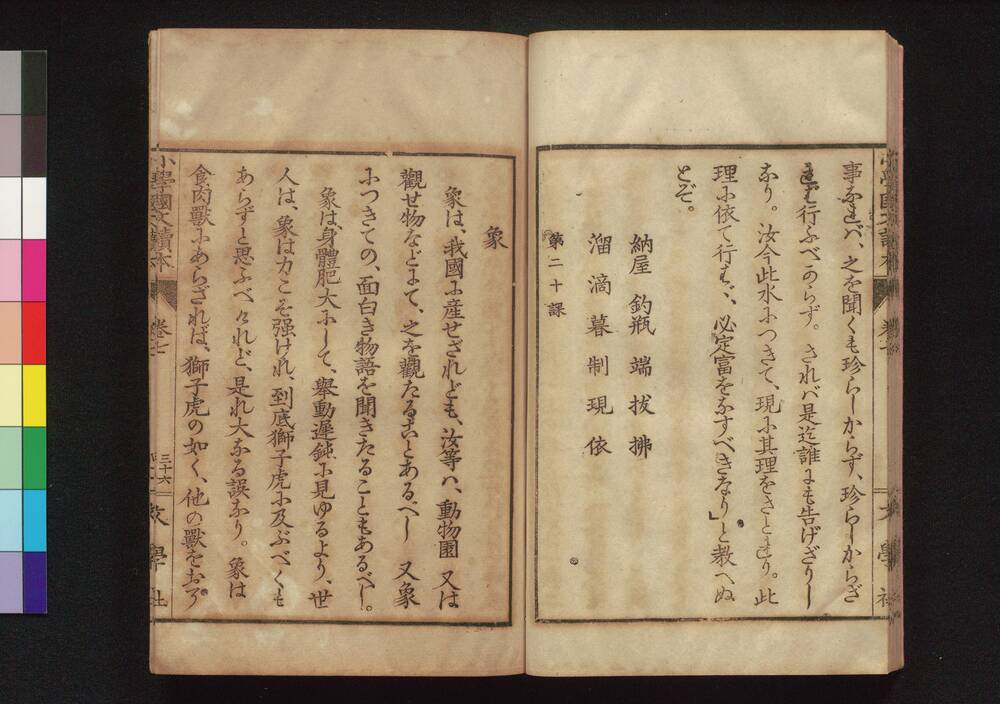 事なれバ、之を聞くも珍らしからず、珍らしからざ
れば行ふべからず。されバ是迄誰にも告げざりし
なり。汝今此水につきて、現に其理をさとれり。此
理に依て行はゞ、必定富をなすべきなり」と教へぬ
とぞ。
納屋 釣瓶 端 拔 拂
溜 滴 暮 制 現 依
第二十課
象
象は、我國に産せざれども、汝等ハ、動物園 又は
觀せ物などにて、之を觀たることあるべし 又象
につきての、面白き物語を聞きたることもあるべし。
象は、身體肥大にして、擧動遲鈍に見ゆるより、世
人は、象は力こそ强けれ、到底獅子虎に及ぶべくも
あらずと思ふべけれど、是れ大なる誤なり。象は
食肉獸にあらざれば、獅子虎の如く、他の獸を
小學國文讀本 卷七 三十六 文學社